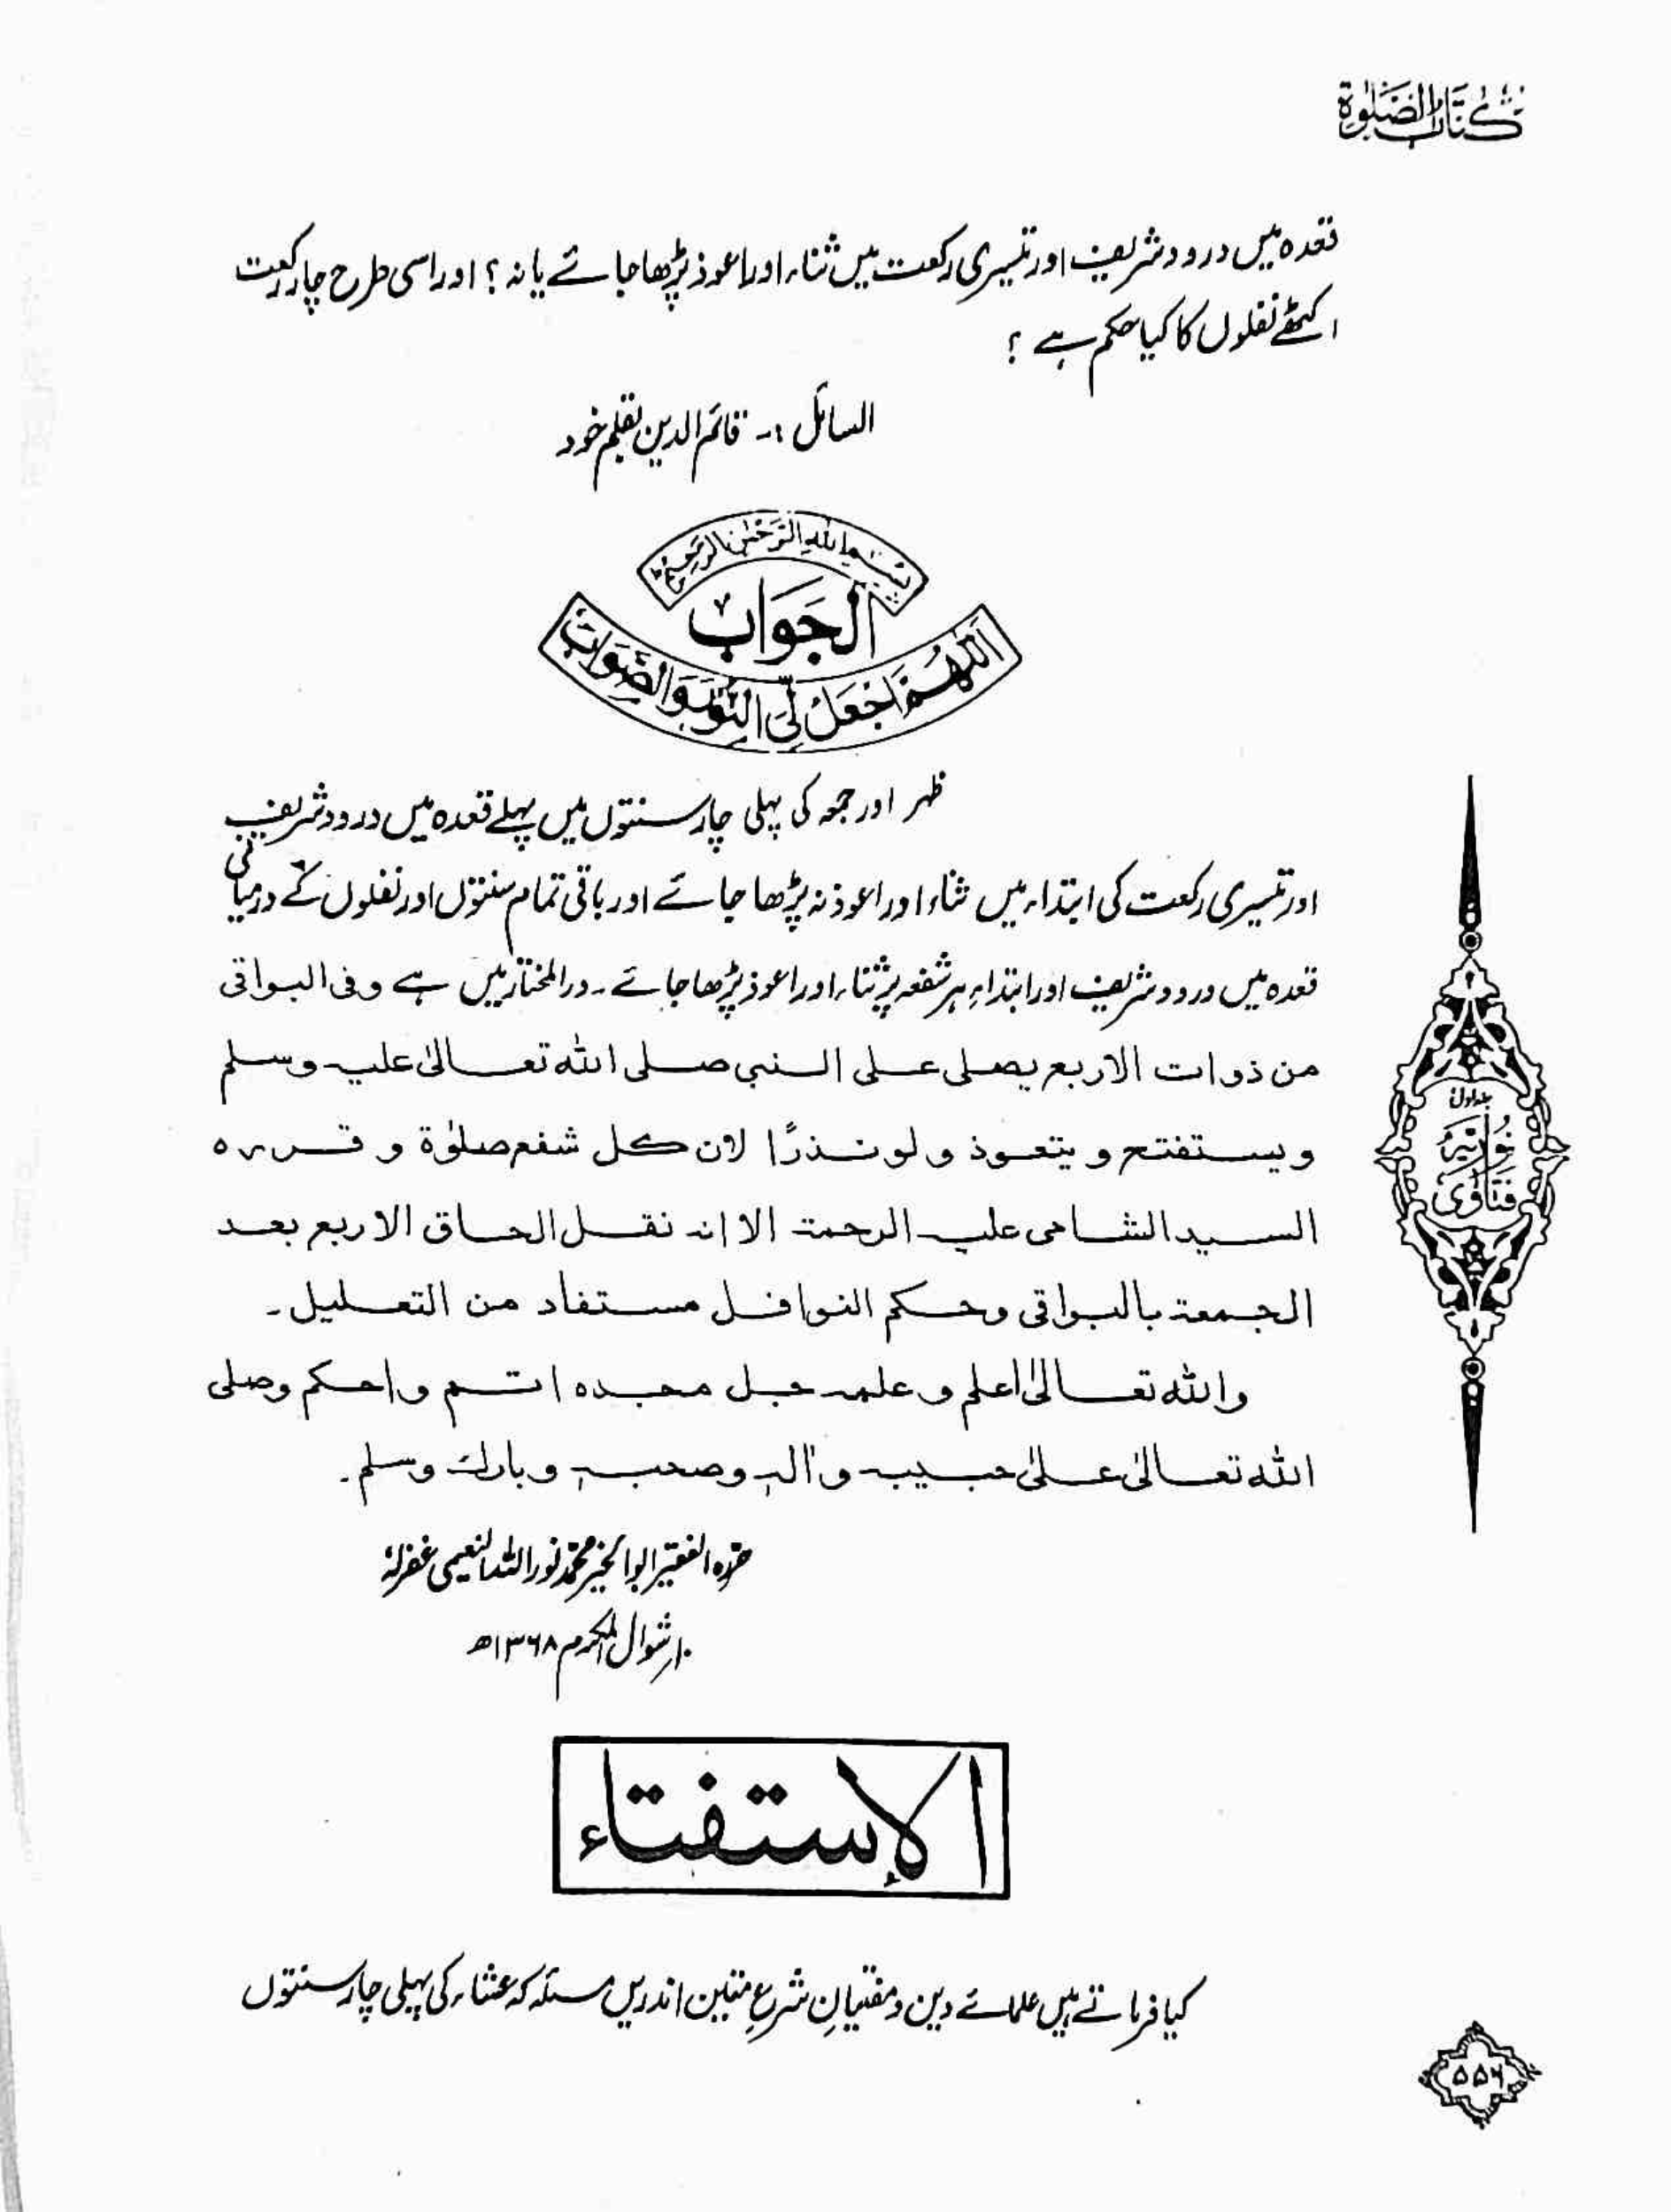 كتاب الصلوة
قعدہ میں درود شریف اور تیسری رکعت میں ثناء اور اعوذ پڑھا جائے یا نہ ؟ اور اسی طرح چار رکعت
اکٹھے نفلوں کا کیا حکم ہے ؟
السائل :۔ قائم الدین بقلم خود
بسم الله الرحمن الرحيم
الجواب
اللهم اجعل لي النور والصواب
ظہر اور جمعہ کی پہلی چار سنتوں میں پہلے قعدہ میں درود شریف
اور تیسری رکعت کی ابتداء میں ثناء اور اعوذ نہ پڑھا جائے اور باقی تمام سنتوں اور نفلوں کے درمیانی
قعدہ میں درود شریف اور ابتداءِ ہر شفعہ پر ثناء اور اعوذ پڑھا جائے ۔ در المختار میں ہے وفی البواقی
من ذوات الاربع يصلى على النبى صلى الله تعالىٰ عليه وسلم
ويستفتح و يتعوذ ولو نذرًا لان كل شفع صلوٰة و قرره
السيد الشامى عليه الرحمة الا انه نقل الحاق الاربع بعد
الجمعة بالبواقى وحكم النوافل مستفاد من التعليل ۔
والله تعالىٰ اعلم و علمه جل مجده اتم واحكم وصلى
الله تعالىٰ علىٰ حبيبه واٰله وصحبه وبارك وسلم ۔
حررہ الفقیر ابوالخیر محمد نور اللہ النعیمی غفرلہٗ
۱۰ر شوال المکرم ۱۳۶۸ھ
جلد اول
نوریہ
فتاوىٰ
الإستفتاء
کیا فرماتے ہیں علمائے دین و مفتیانِ شرعِ متین اندریں مسئلہ کہ عشاء کی پہلی چار سنتوں
۵۵۶